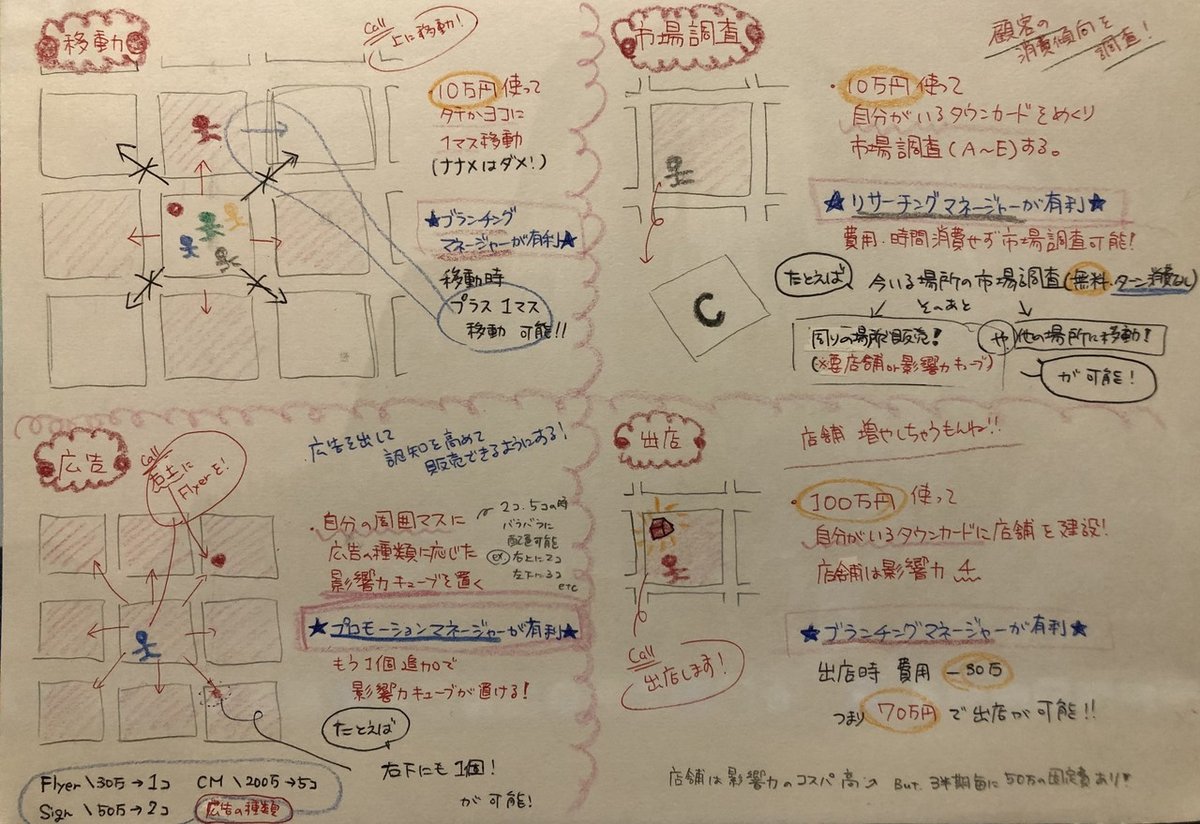 移動
Call
上に移動!
・10万円使って
タテかヨコに
1マス移動
(ナナメはダメ!)
★ブランチング
マネージャーが有利★
移動時
プラス1マス
移動 可能!!
市場調査
顧客の
消費傾向を
調査!
・10万円使って
自分がいるタウンカードをめくり
市場調査(A~E)する。
★リサーチングマネージャーが有利★
費用・時間消費せず市場調査可能!
たとえば 今いる場所の市場調査(無料・ターン消費なし)
そのあと
周りの場所で販売! や 他の場所に移動!
(※要店舗or影響力キューブ)
が可能!
C
広告
Call
右上に
Flyerを!
広告を出して
認知を高めて
販売できるようにする!
・自分の周囲マスに
広告の種類に応じた
影響力キューブを置く
2コ、5コの時
バラバラに
配置可能
ex 右上に2コ
左下に3コ
etc
★プロモーションマネージャーが有利★
もう1個追加で
影響力キューブが置ける!
たとえば
右下にも1個!
が可能!
Flyer \30万→1コ CM \200万→5コ
Sign \50万→2コ 広告の種類
出店
店舗 増やしちゃうもんね!!
・100万円 使って
自分がいるタウンカードに店舗を建設!
店舗は影響力 4
Call
出店します!
★ブランチングマネージャーが有利★
出店時 費用 -30万
つまり 70万円で出店が可能!!
店舗は影響力のコスパ高っ But 3半期毎に50万の固定費あり!